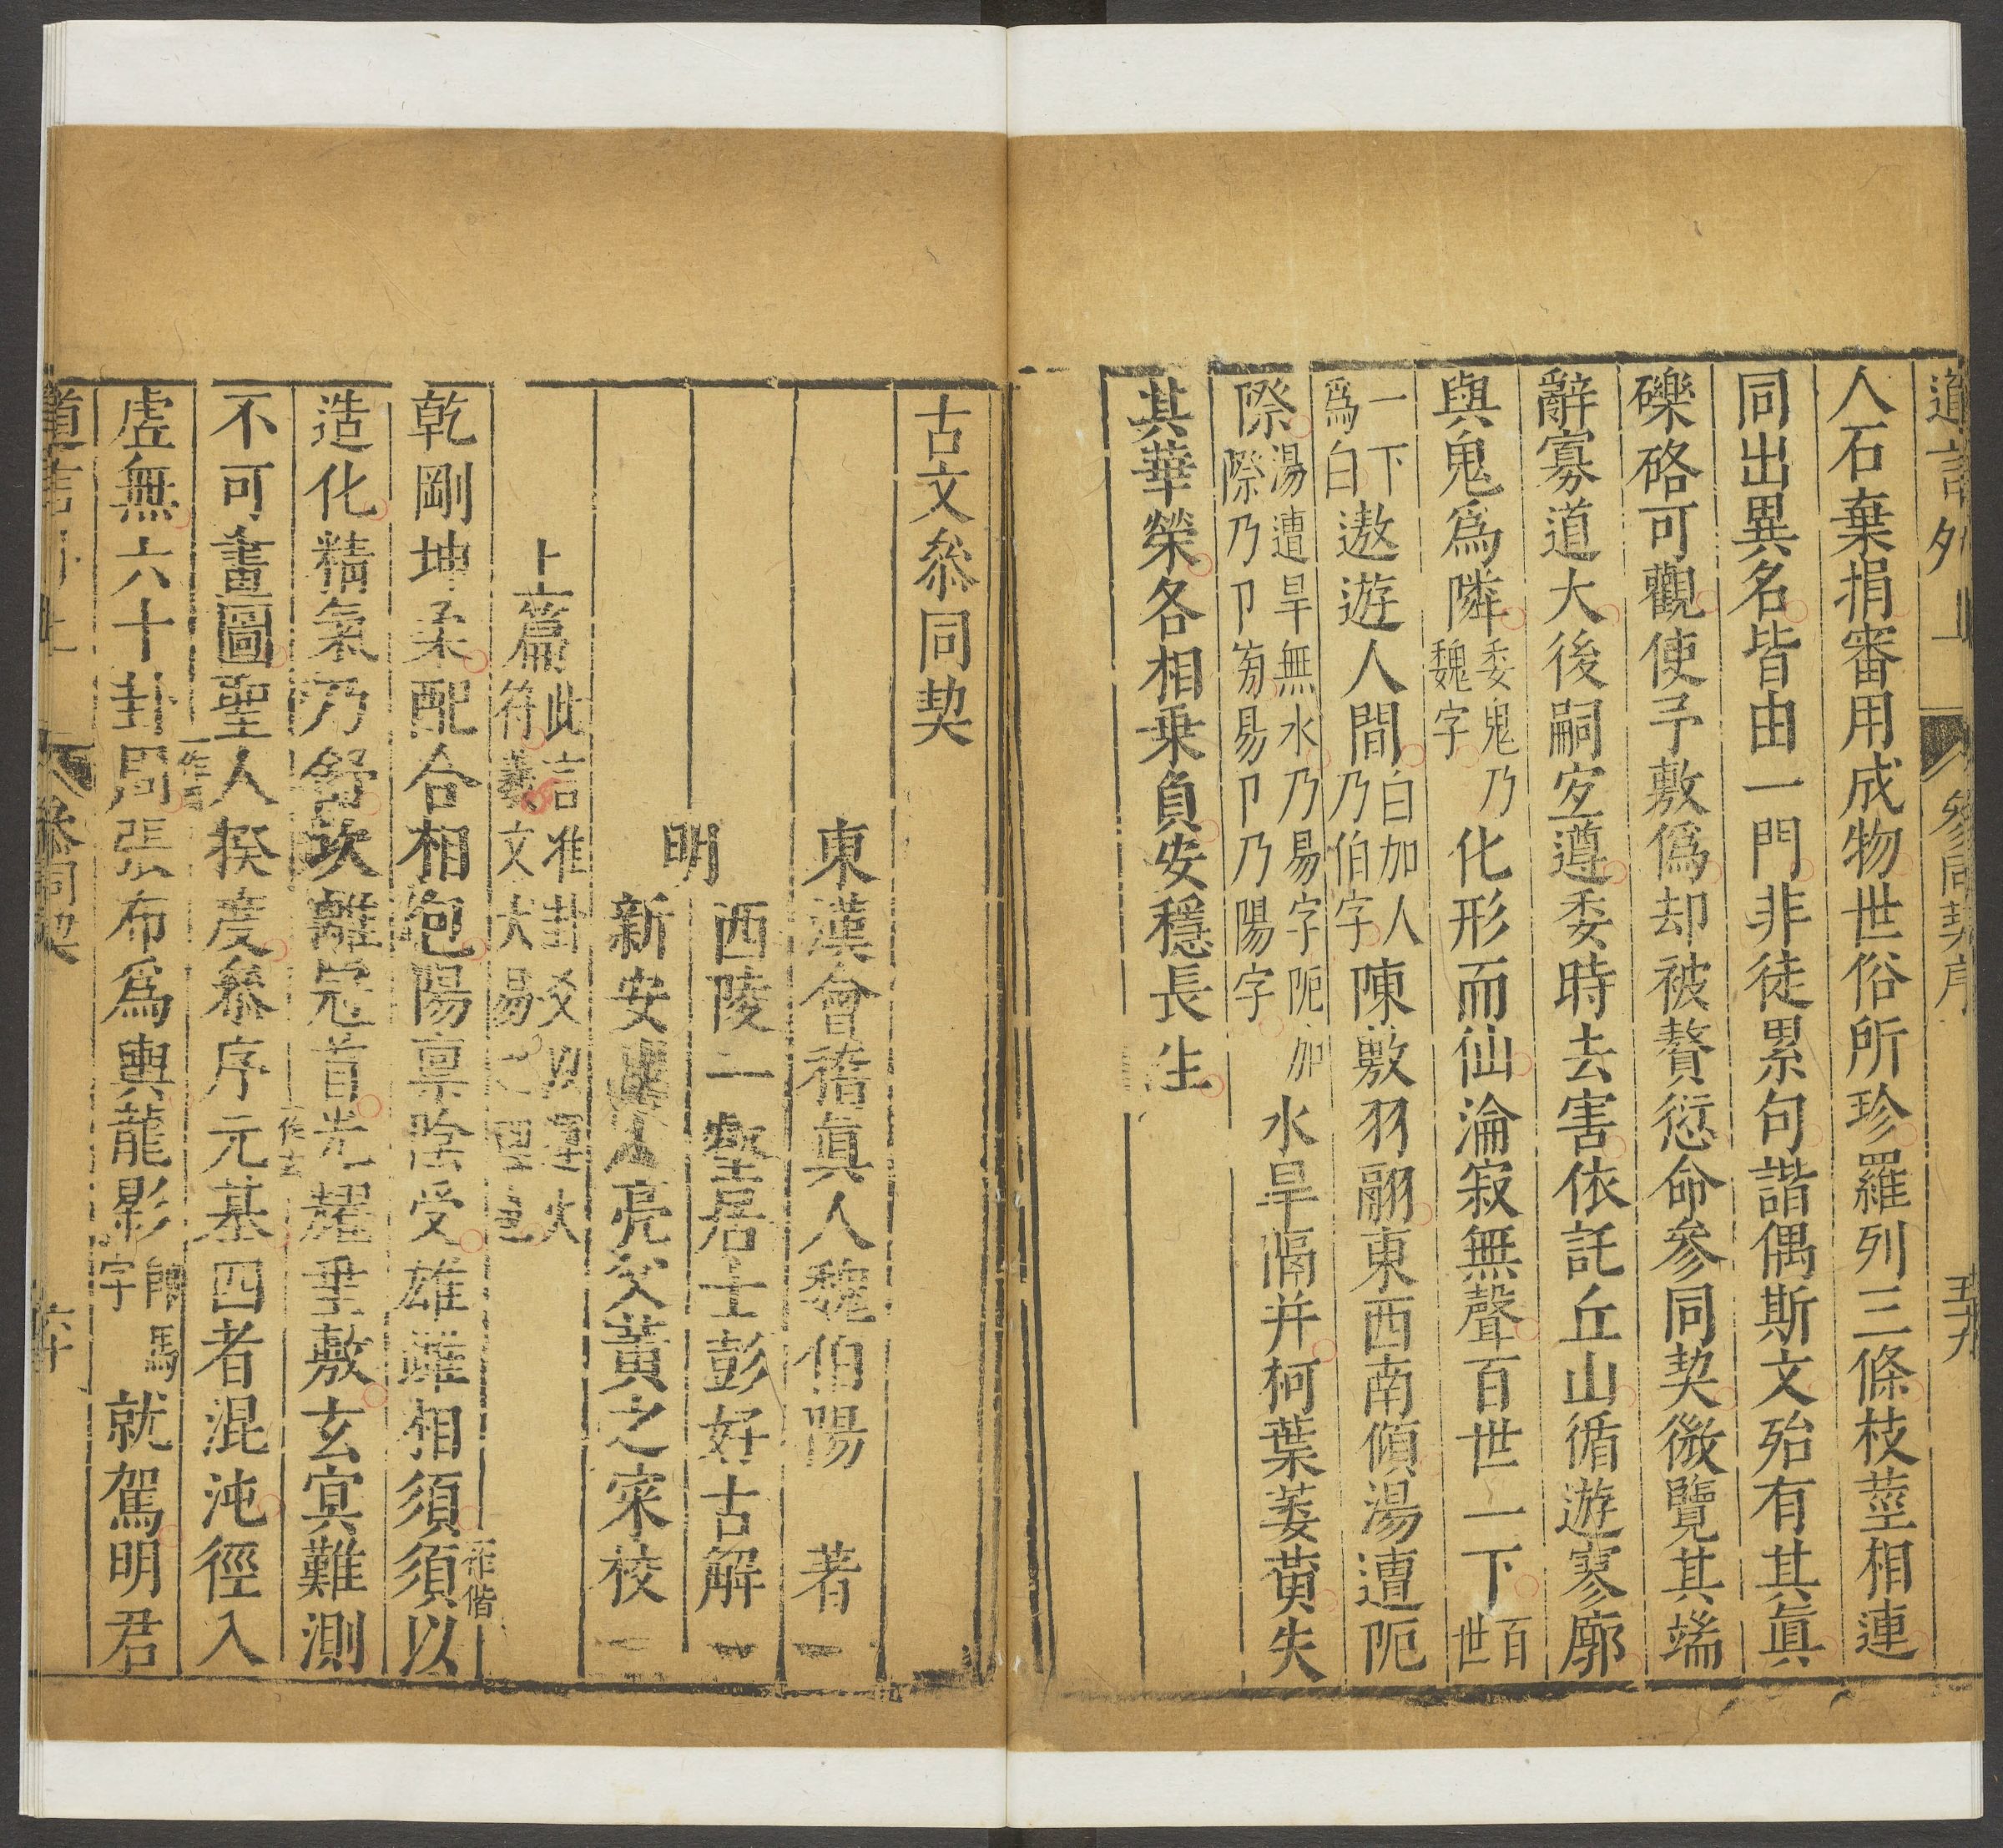 道言外 參同契序 五十九
人石棄捐審用成物世俗所珍羅列三條枝莖相連
同出異名皆由一門非徒累句諧偶斯文殆有其眞
礫硌可觀使予敷僞却被贅愆命參同契微覽其端
辭寡道大後嗣宜遵委時去害依託丘山循遊寥廓
與鬼爲隣委鬼乃魏字化形而仙淪寂無聲百世一下百世
一下爲白遨遊人間白加人乃伯字陳敷羽翮東西南傾湯遭阨
際湯遭旱無水乃易字阨加際乃卩旁易卩乃陽字水旱隔并柯葉萎黄失
其華榮各相乗負安穩長生
古文叅同契
東漢會稽眞人魏伯陽 著
明 西陵一壑居士彭好古解
新安人亮父黃之寀校
上篇此言准卦爻以運火符羲文大易之理也
乾剛坤柔配合相包陽稟陰受雄雌相須須以一作偕
造化精氣乃舒坎離冠首光耀垂敷玄冥難測
不可畫圖聖人揆度叅序元基四者混沌徑入
虛無六十卦周張布爲輿龍影卽馬字就駕明君
叅同契 六十